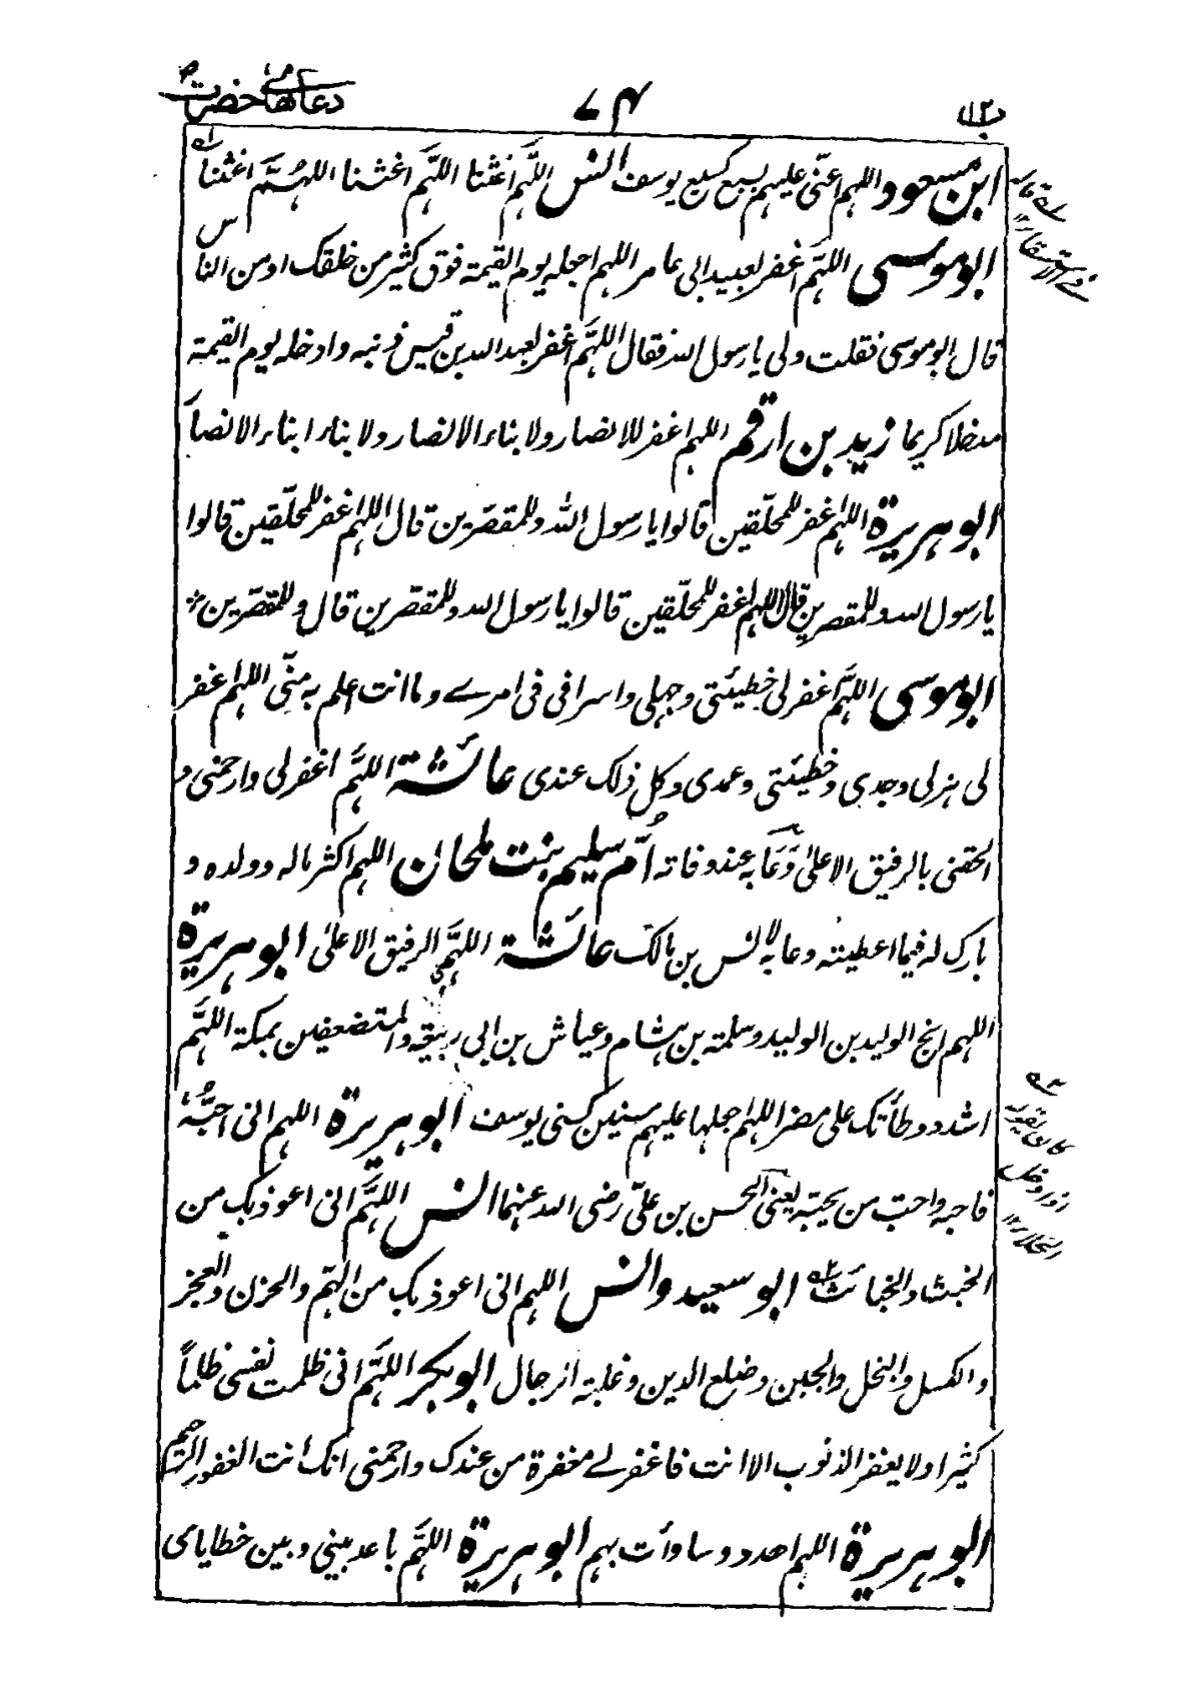 دعاهای حضرت ۷۴
ابن مسعود اللهم اعنّی علیهم بسبع کسبع یوسف انس اللّهم اغثنا اللّهم اغثنا اللهم اغثنا
ابو موسی اللّهم اغفر لعبید ابی عامر اللهم اجعله یوم القیمة فوق کثیر من خلقک او من الناس
قال ابو موسی فقلت ولی یا رسول الله فقال اللّهم اغفر لعبد الله بن قیس ذنبه وادخله یوم القیمة
مدخلا کریما زید بن ارقم اللهم اغفر للانصار ولابناء الانصار ولابناء ابناء الانصار
ابو هریرة اللهم اغفر للمحلّقین قالوا یا رسول الله وللمقصّرین قال اللهم اغفر للمحلّقین قالوا
یا رسول الله وللمقصرین قال اللهم اغفر للمحلّقین قالوا یا رسول الله وللمقصّرین قال وللمقصّرین
ابو موسی اللّهم اغفر لی خطیئتی وجهلی واسرافی فی امرے وما انت اعلم به منّی اللهم اغفر
لی هزلی وجدی وخطیئتی وعمدی وکل ذلک عندی عائشة اللّهم اغفر لی وارحمنی و
الحقنی بالرفیق الاعلیٰ دعا به عند وفاته امّ سلیم بنت ملحان اللهم اکثر ماله وولده و
بارک له فیما اعطیته دعا به لانس بن مالک عائشة اللّهم الرفیق الاعلیٰ ابو هریرة
اللهم انج الولید بن الولید وسلمة بن هشام وعیاش بن ابی ربیعة والمستضعفین بمکة اللّهم
اشدد وطأتک علی مضر اللهم اجعلها علیهم سنین کسنی یوسف ابو هریرة اللهم انی احبّه
فاحبه واحب من یحبّه یعنی الحسن بن علیّ رضی الله عنهما انس اللّهم انی اعوذ بک من
الخبث والخبائث ابو سعید وانس اللهم انی اعوذ بک من الهّم والحزن والعجز
والکسل والبخل والجبن وضلع الدین وغلبة الرجال ابو بکر اللّهم انی ظلمت نفسی ظلماً
کثیرا ولا یغفر الذنوب الا انت فاغفر لے مغفرة من عندک وارحمنی انک انت الغفور الرحیم
ابو هریرة اللهم اهد دوسا وأت بهم ابو هریرة اللّهم باعد بینی وبین خطایای